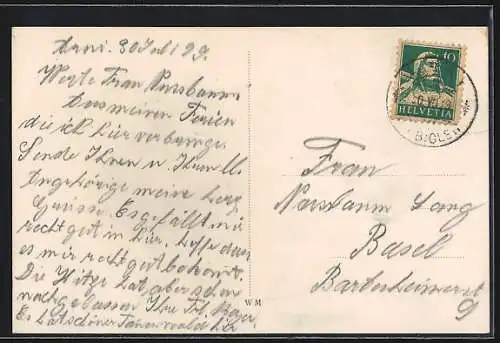 Arni. 30 Juli 29.
Werte Frau Nussbaum
Aus meinen Ferien
die ich hier verbringe.
Sende Ihnen u Ihren ll.
Angehörige meine herz
Grüsse. Es gefällt mir
recht gut in hier, hoffe dass
es mir recht gut bekommt.
Die Hitze hat aber schon
nachgelassen Ihre Frl.
E.
W M
10
HELVETIA
BIGLEN
Frau
Nussbaum
Basel
Bartenheimerst
9